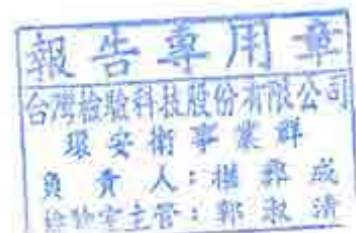 報告專用章
台灣檢驗科技股份有限公司
環安衛事業群
負責人：成
檢驗室主管：郭淑清